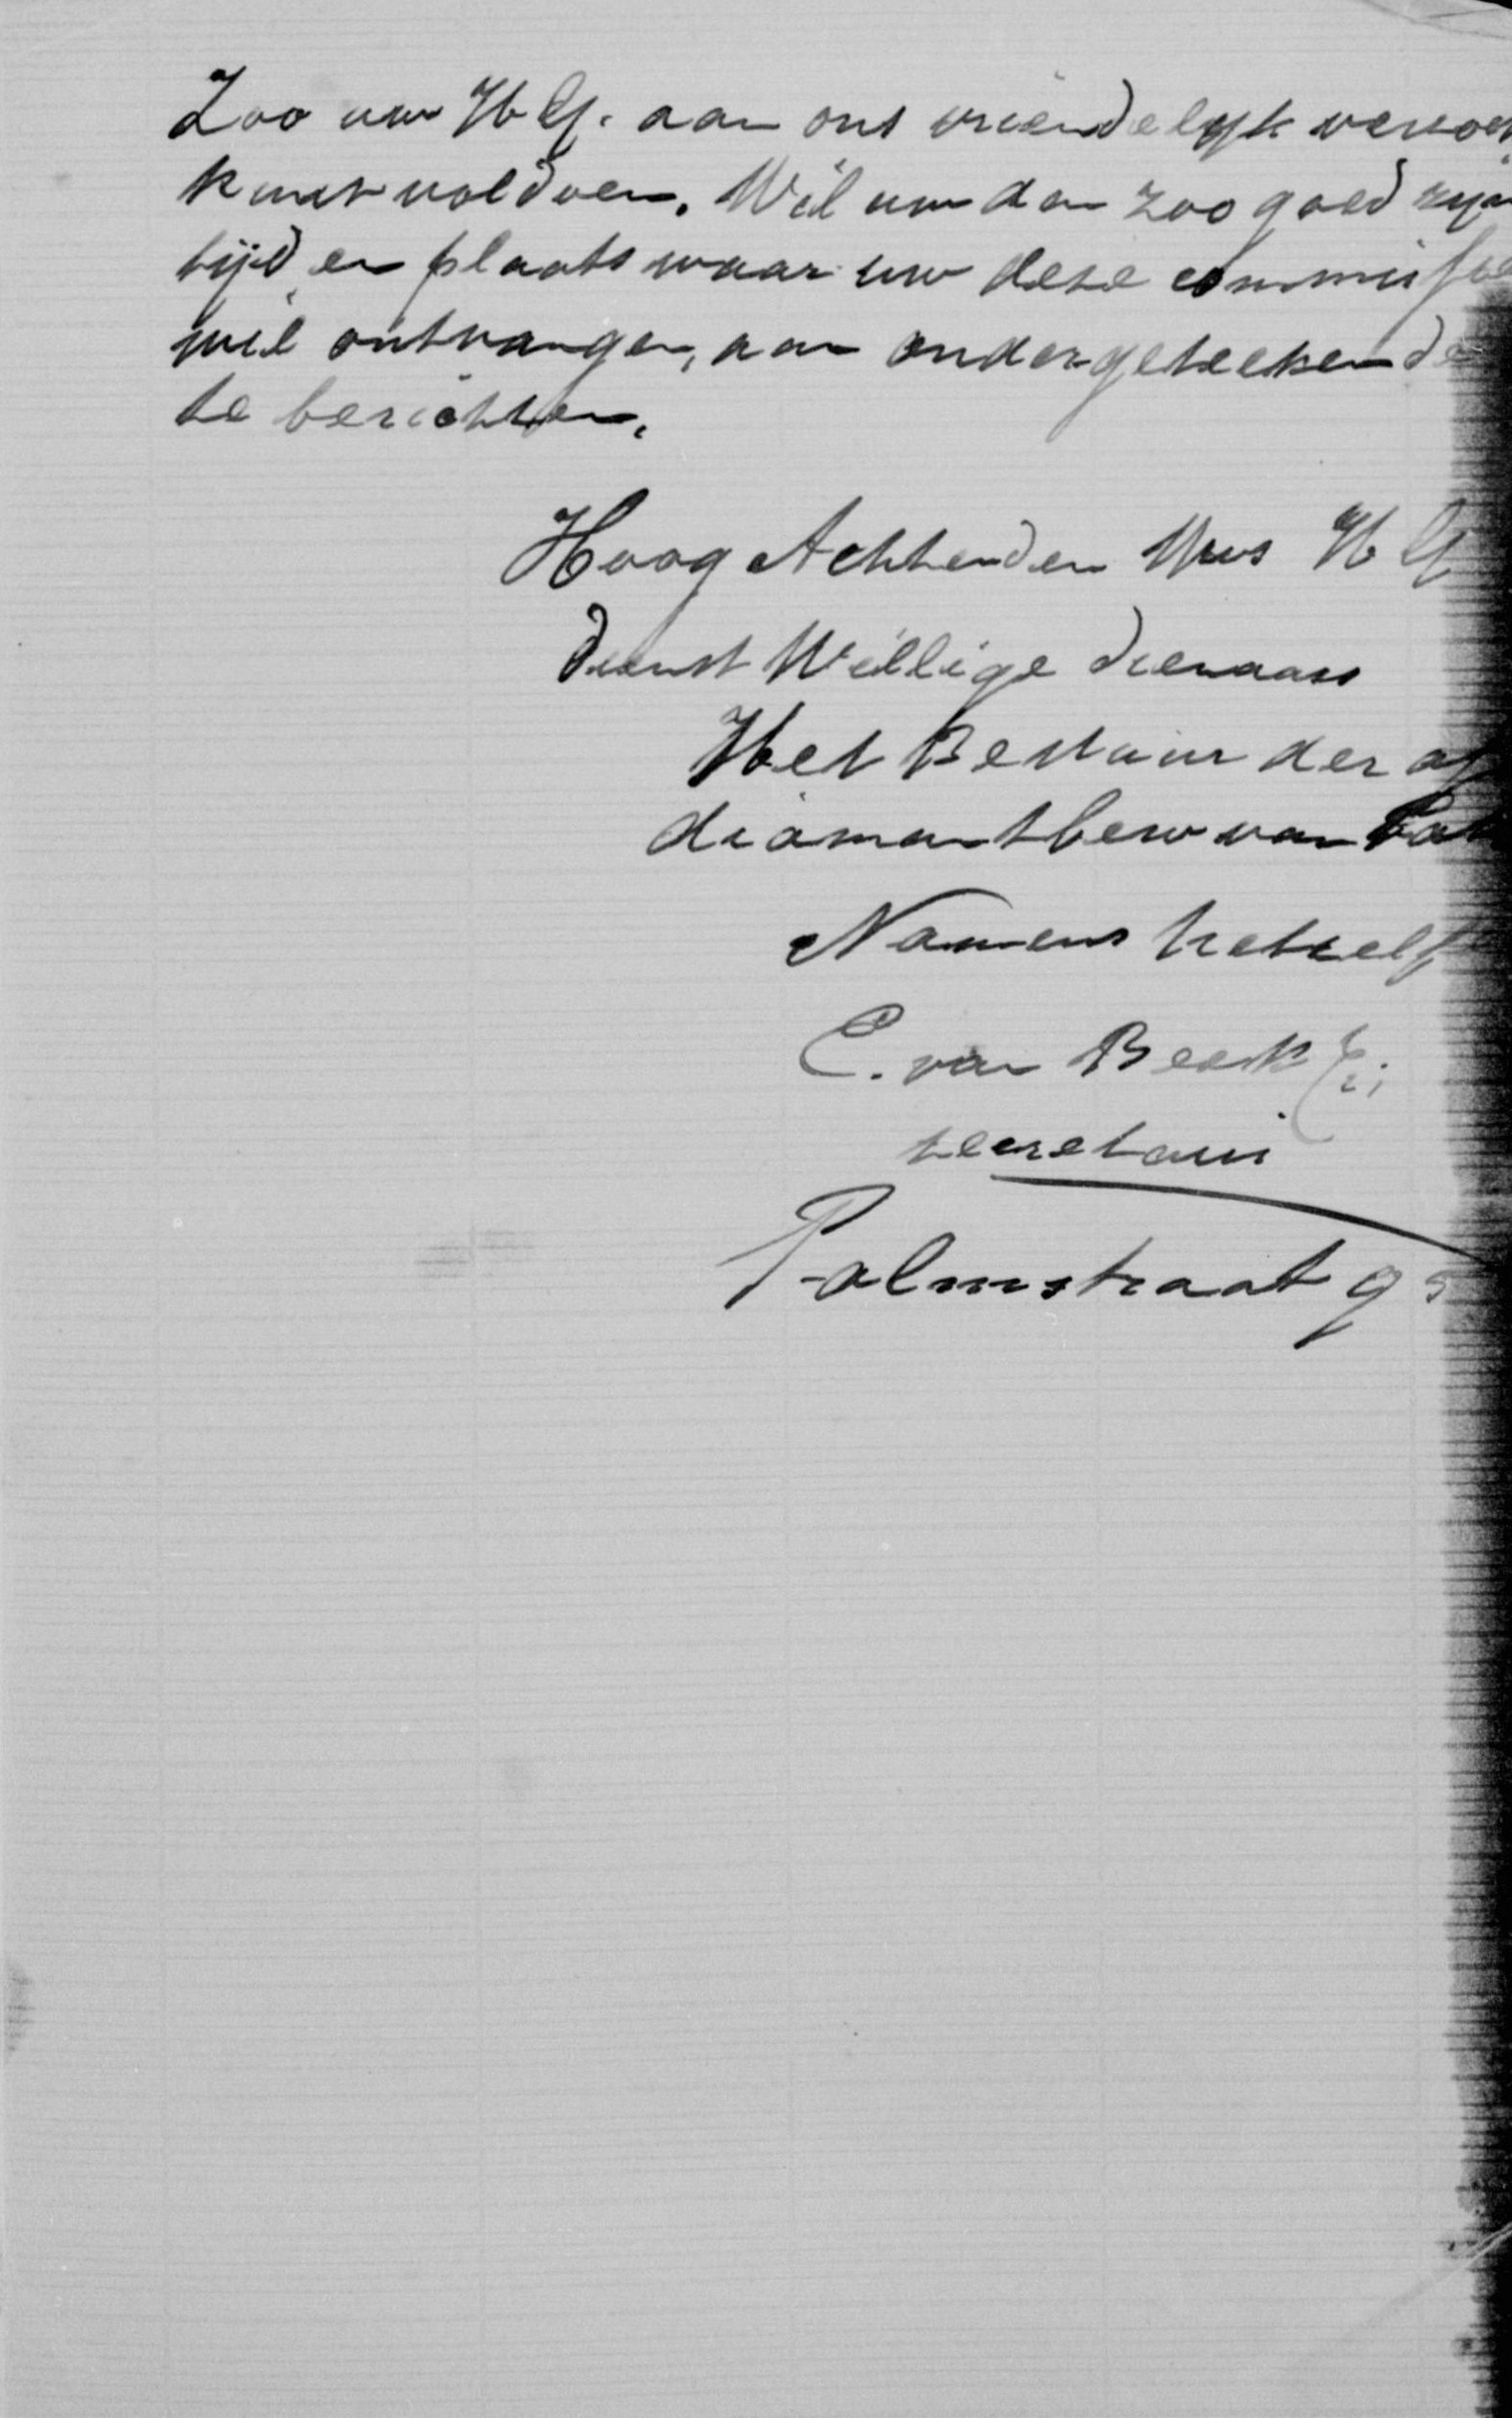 Zoo uw HEd. aan ons vriendelyk verzoek
kunt voldoen. Wil uw dan zoo goed zyn
tijd en plaats waar uw deze commissie
wil ontvangen, aan ondergeteekende
te berichten.
Hoog Achtenden Uws HEd
dienst Willige dienaars
Het Bestuur der af
diamantbew van Pat
Namens hetzelf
C. van Beek
secretaris
Palmstraat 9